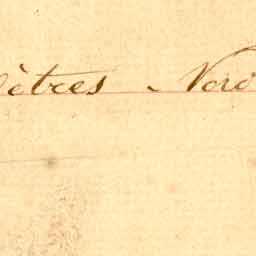 ètres - Nord